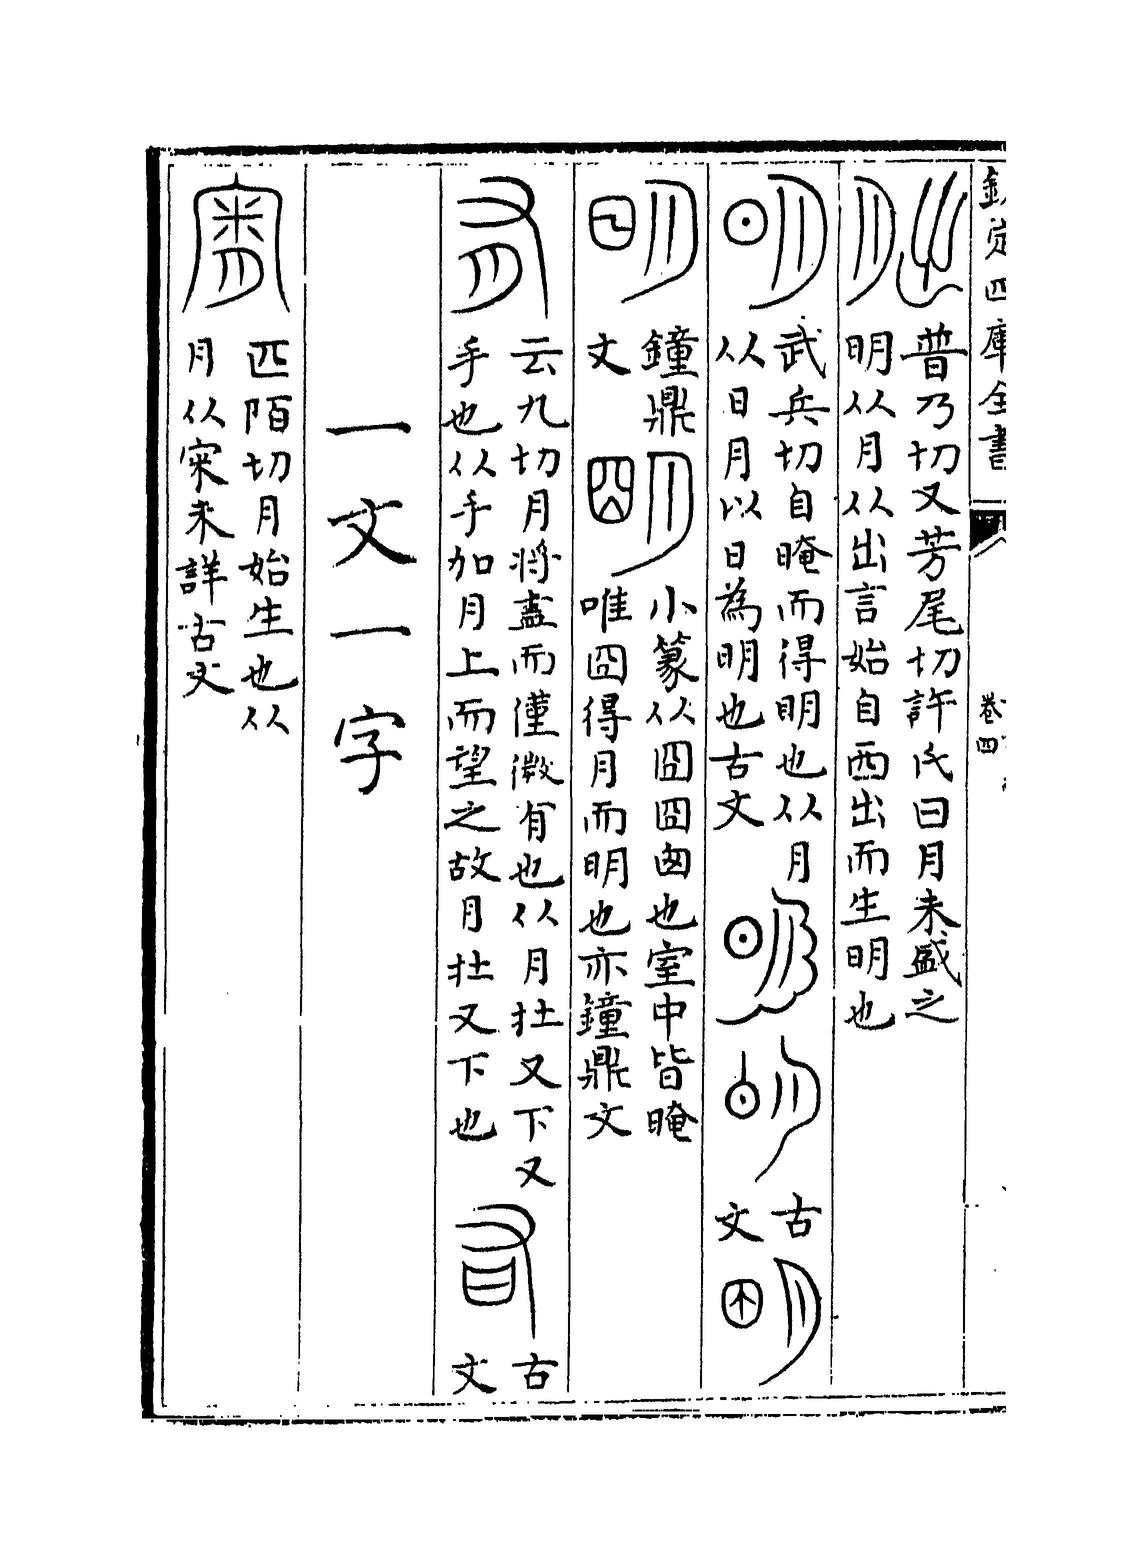 欽定四庫全書
卷四
普乃切又芳尾切許氏曰月未盛之
明从月从出言始自西出而生明也
武兵切自晻而得明也从月
从日月以日為明也古文
古文
鐘鼎文
小篆从囧囧囪也室中皆晻
唯囧得月而明也亦鐘鼎文
云九切月將盡而僅微有也从月在又下又
手也从手加月上而望之故月在又下也
古文
一文一字
匹陌切月始生也从
月从宷未詳古文